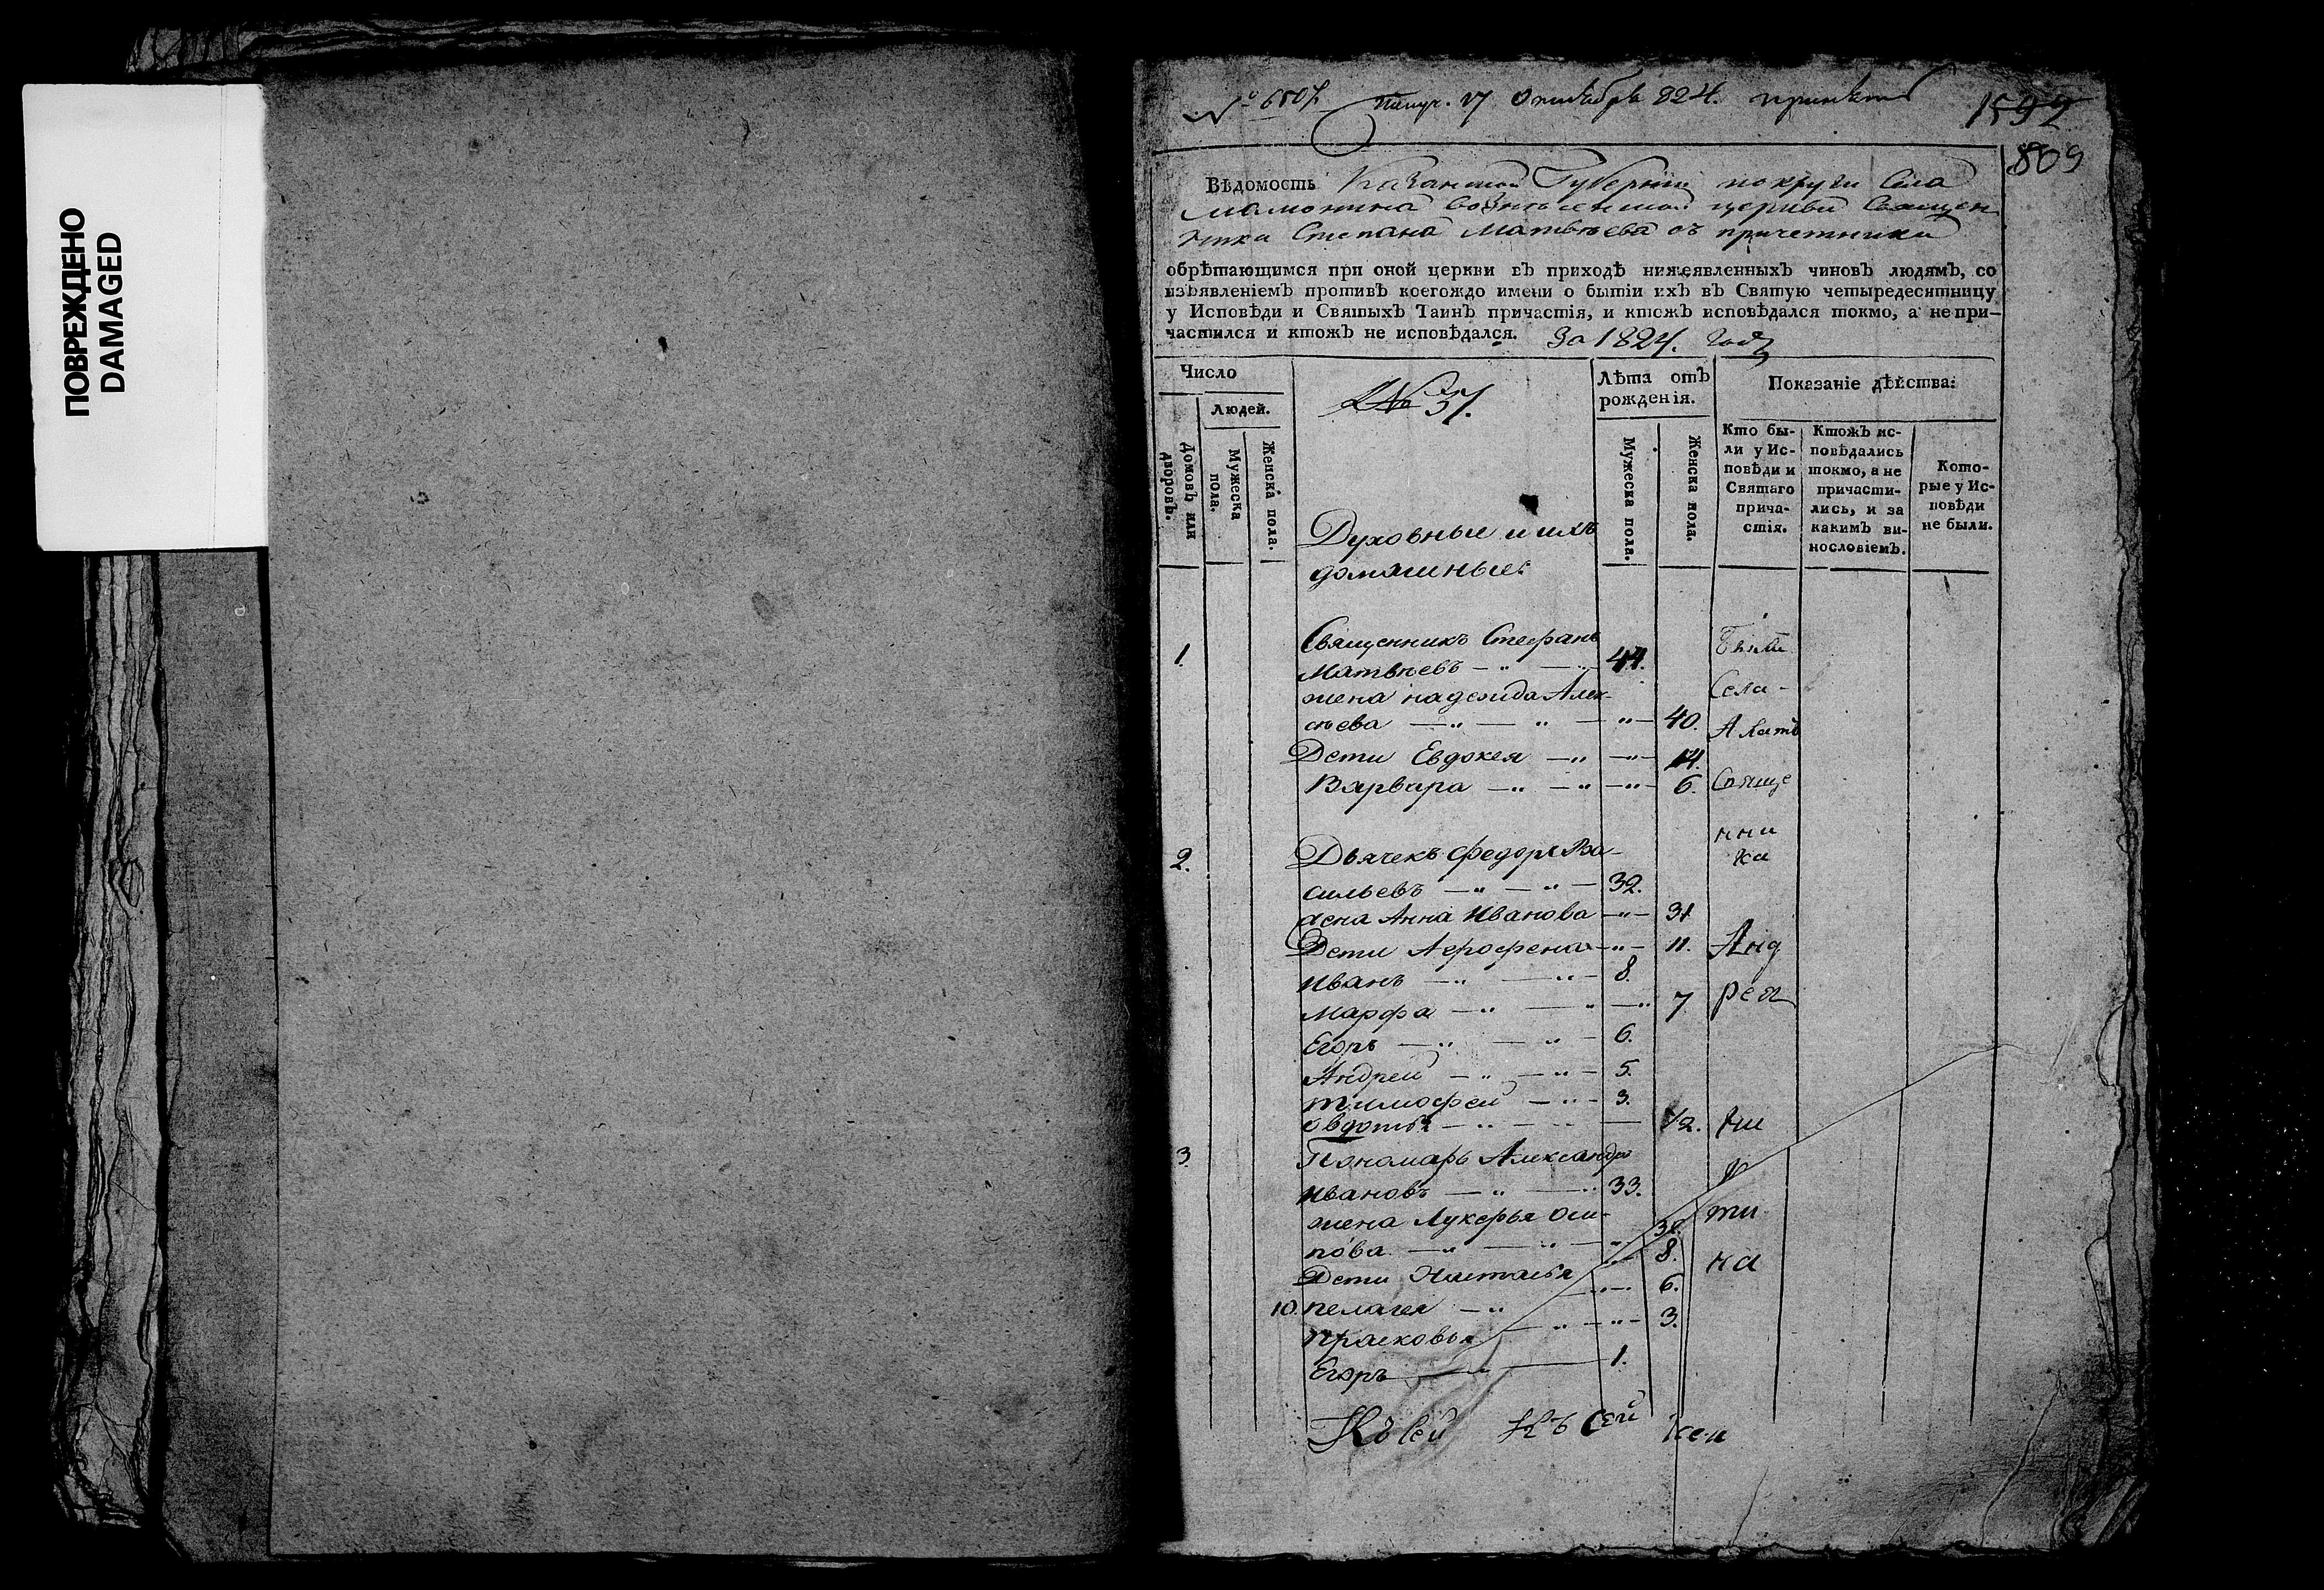 ПОВРЕЖДЕНО
DAMAGED
№ 6507. Получ. 17 Октября 824.
1592
809
Вѣдомость Казанской Губерніи округи Села
Мамонина Вознесенской церкви Священ
ника Степана Матвѣева съ причетники
обрѣтающимся при оной церкви въ приходѣ нижеявленныхъ чиновъ людямъ, со
изъявленіемъ противъ коегождо имени о бытіи ихъ въ Святую четыредесятницу
у Исповѣди и Святыхъ Таинъ причастія, и ктожъ исповѣдался токмо, а не при-
частился и ктожъ не исповѣдался. За 1824. годъ
Число
Людей.
Домовъ или дворовъ.
Мужеска пола.
Женска пола.
№ 37.
Лѣта отъ
рожденія.
Мужеска пола.
Женска пола.
Показаніе дѣйства:
Кто бы-
ли у Ис-
повѣди и
Святаго
прича-
стія.
Ктожъ ис-
повѣдались
токмо, а не
причасти-
лись, и за
какимъ ви-
нословіемъ.
Кото-
рые у Ис-
повѣди
не были.
Духовные и ихъ
домашные:
1. Священникъ Стефанъ
Матвѣевъ — " — " — 44.
жена надежда Алек-
сѣева — " — " — " — 40.
Дети Евдокея — " — " — 14.
Варвара — " — " — " — 6.
Села -
Алатъ
Свяще
нни
ка
2. Дьячекъ Федоръ Ва-
сильевъ — " — " — 32.
жена Анна Иванова — " — 31
Дети Агрофена — " — 11.
Иванъ — " — " — 8.
Марфа — " — " — " 7
Егоръ — " — " — 6.
Андрей — " — " — 5.
Тимофей — " — 3.
Овдотья — " — " — 1/2.
Анд
рея
3. Пономарь Александръ
Ивановъ — " — " 33.
жена Лукерья Оси-
пова — " — " — "
Дети Настасья " 8.
10. пелагея — " — " — 6.
Прасковья — " — " — 3.
Егоръ — " — 1.
ти
на
Къ сей Къ сей